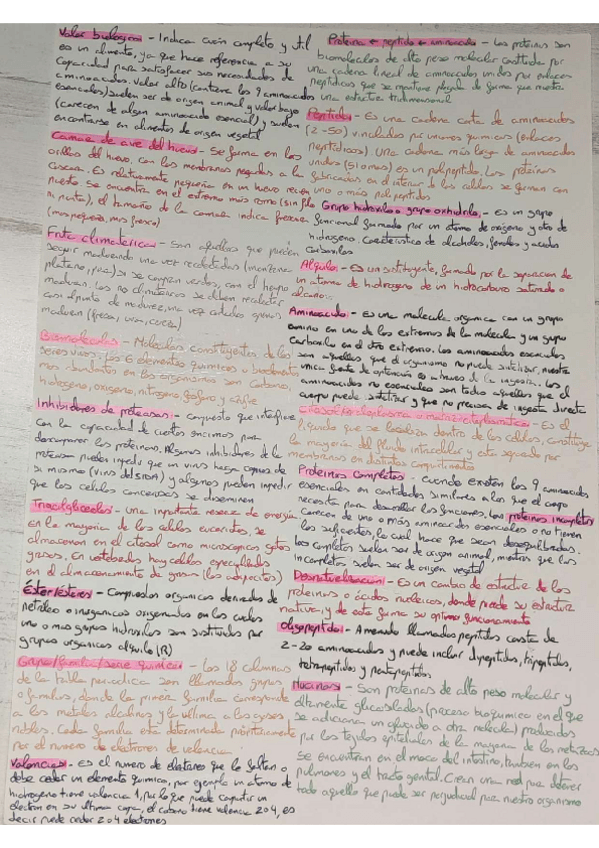 Valor biologico - Indica cuán completo y util
es un alimento, ya que hace referencia a su
capacidad para satisfacer sus necesidades de
aminoacidos. Valor alto (contiene los 9 aminoacidos
esenciales) suelen ser de origen animal y valor bajo
(carecen de algun aminoacido esencial) y suelen
encontrarse en alimentos de origen vegetal
Camara de aire del huevo - Se forma en los
orillos del huevo, con las membranas pegadas a la
cascara. Es relativamente pequeña en un huevo recien
puesto. Se encuentra en el extremo más romo (sin filo
ni punta), el tamaño de la camara indica frescura
(mas pequeña, mas fresco)
Fruta climaterica - Son aquellas que pueden
seguir madurando una vez recolectadas (manzana
platano, pera) si se compran verdes, con el tiempo
maduran. Las no climatericas se deben recolectar
con el punto de madurez, una vez cogidas apenas
maduren (fresa, uva, cereza)
Biomoleculas - Moleculas constituyentes de los
seres vivos. Los 6 elementos quimicos o bioelementos
mas abundantes en los organismos son Carbono,
hidrogeno, oxigeno, nitrogeno, fosforo y azufre
Inhibidores de proteasas - compuesto que interfiere
con la capacidad de ciertas enzimas para
descomponer las proteinas. Algunos inhibidores de la
proteasa pueden impedir que un virus haga copias de
si mismo (virus del SIDA) y algunos pueden impedir
que las celulas cancerosas se diseminen
Triacilgliceroles - una importante reserva de energia
en la mayoria de las celulas eucariotas, se
almacenan en el citosol como microscopicas gotas
grasas. En vertebrados hay celulas especializadas
en el almacenamiento de grasas (los adipocitos)
Éster/esteres - Compuestos organicos derivados de
petroleo o inorganicos oxigenados en los cuales
uno o mas grupos hidroxilos son sustituidos por
grupos organicos alquilo (R)
Grupo/familia/serie quimicos - Las 18 columnas
de la tabla periodica son llamadas grupos
o familias, donde la primera familia corresponde
a los metales alcalinos y la ultima a los gases
nobles. Cada familia esta determinada prioritariamente
por el numero de electrones de valencia
Valencias - es el numero de electrones que le faltan o
debe ceder un elemento quimico, por ejemplo un atomo de
hidrogeno tiene valencia 1, por lo que puede compartir un
electron en su ultima capa, el carbono tiene valencia 2 o 4, es
decir puede ceder 2 o 4 electrones
Proteina ← peptido ← aminoacido - Las proteinas son
biomoleculas de alto peso molecular constituida por
una cadena lineal de aminoacidos unidos por enlaces
peptidicos que se mantiene plegada de forma que muestra
una estructura tridimensional
Peptido - Es una cadena corta de aminoacidos
(2-50) vinculados por uniones quimicas (enlaces
peptidicos). Una cadena más larga de aminoacidos
unidos (51 o mas) es un polipeptido. Las proteinas
fabricadas en el interior de las celulas se forman con
uno o más polipeptidos
Grupo hidroxilo o grupo oxhidrilo - es un grupo
funcional formado por un atomo de oxigeno y otro de
hidrogeno. Caracteristico de alcoholes, fenoles y acidos
carboxilos
Alquilo - Es un sustituyente, formado por la separacion de
un atomo de hidrogeno de un hidrocarburo saturado o
alcano
Aminoacido - es una molecula organica con un grupo
amino en uno de los extremos de la molecula y un grupo
carboxilo en el otro extremo. Los aminoacidos esenciales
son aquellos que el organismo no puede sintetizar, nuestra
unica fuente de optencion es a traves de la ingesta. Los
aminoacidos no esenciales son todos aquellos que el
cuerpo puede sintetizar y que no precisan de ingesta directa
Citosol/Hialoplasma o matriz citoplasmatica - Es el
liquido que se localiza dentro de las celulas, constituye
la mayoria del fluido intracelular y esta separado por
membranas en distintos compartimentos
Proteinas completas - cuando existen los 9 aminoacidos
esenciales en cantidades similares a las que el cuerpo
necesita para desarrollar las funciones. Las proteinas incompletas
carecen de uno o más aminoacidos esenciales o no tienen
los suficientes, lo cual hace que sean desequilibradas.
Las completas suelen ser de origen animal, mientras que las
incompletas suelen ser de origen vegetal
Desnaturalizacion - Es un cambio de estructura de las
proteinas o ácidos nucleicos, donde pierde su estructura
nativa, y de esta forma su optimo funcionamiento
Oligopeptidos - A menudo llamados peptidos consta de
2-20 aminoacidos y puede incluir dipeptidos, tripeptidos,
tetrapeptidos y pentapeptidos
Mucinas - Son proteinas de alto peso molecular y
altamente glucosiladas (proceso bioquimico en el que
se adiciona un glucido a otra molecula) producidas
por los tejidos epiteliales de la mayoria de los metazoos
Se encuentran en el moco del intestino, tambien en los
pulmones y el tracto genital. Crean una red que detiene
todo aquello que puede ser perjudicial para nuestro organismo